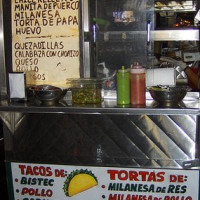 MANITA DE PUERCO
MILANESA
TORTA DE PAPA
HUEVO
QUEZADILLAS
CALABAZA CON CHORIZO
QUESO
POLLO
TACOS DE:
• BISTEC
• POLLO
TORTAS DE:
• MILANESA DE RES
• MILANESA DE POLLO